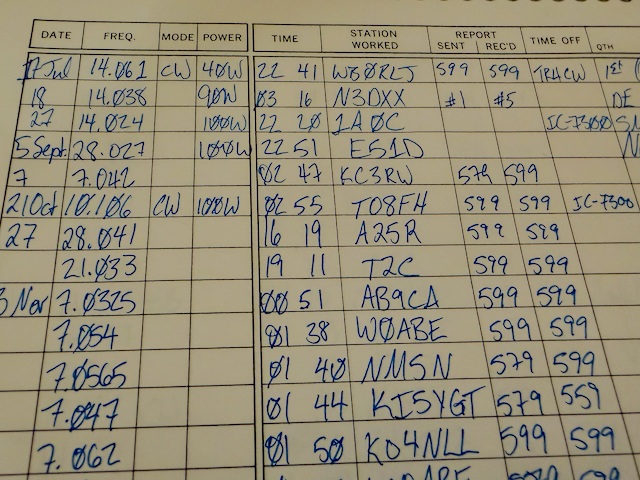 DATE FREQ. MODE POWER TIME STATION WORKED REPORT SENT REC'D TIME OFF QTH
17 Jul 14.061 CW 40W 22 41 599 599 TR4CW 1st
18 14.038 90W 03 16 N3DXX #1 #5 DE
27 14.024 100W 22 20 1A0C IC-7300
5 Sept 28.027 100W 22 51 ES1D
7 7.042 02 47 KC3RW 579 599
21 Oct 10.106 CW 100W 02 55 TO8FH 599 599 IC-7300
27 28.041 16 19 A25R 599 599
21.033 19 11 T2C 599 599
3 Nov 7.0325 00 51 AB9CA 599 599
7.054 01 38 W0ABE 599 599
7.0565 01 40 NM5N 579 599
7.047 01 44 KI5YGT 579 559
7.062 01 50 KO4NLL 599 599